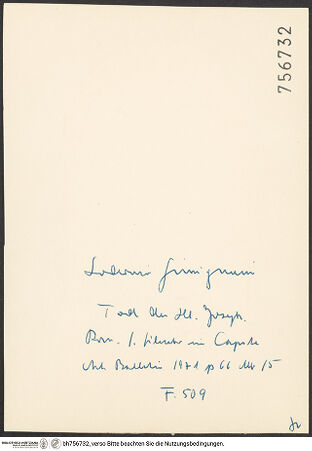 756732
Lodovico Gimignani
Tod des Hl. Joseph.
Rom. S. Silvestro in Capite
Art Bulletin 1971 p 66 Abb 15
F. 509
bh756732, verso Bitte beachten Sie die Nutzungsbedingungen.